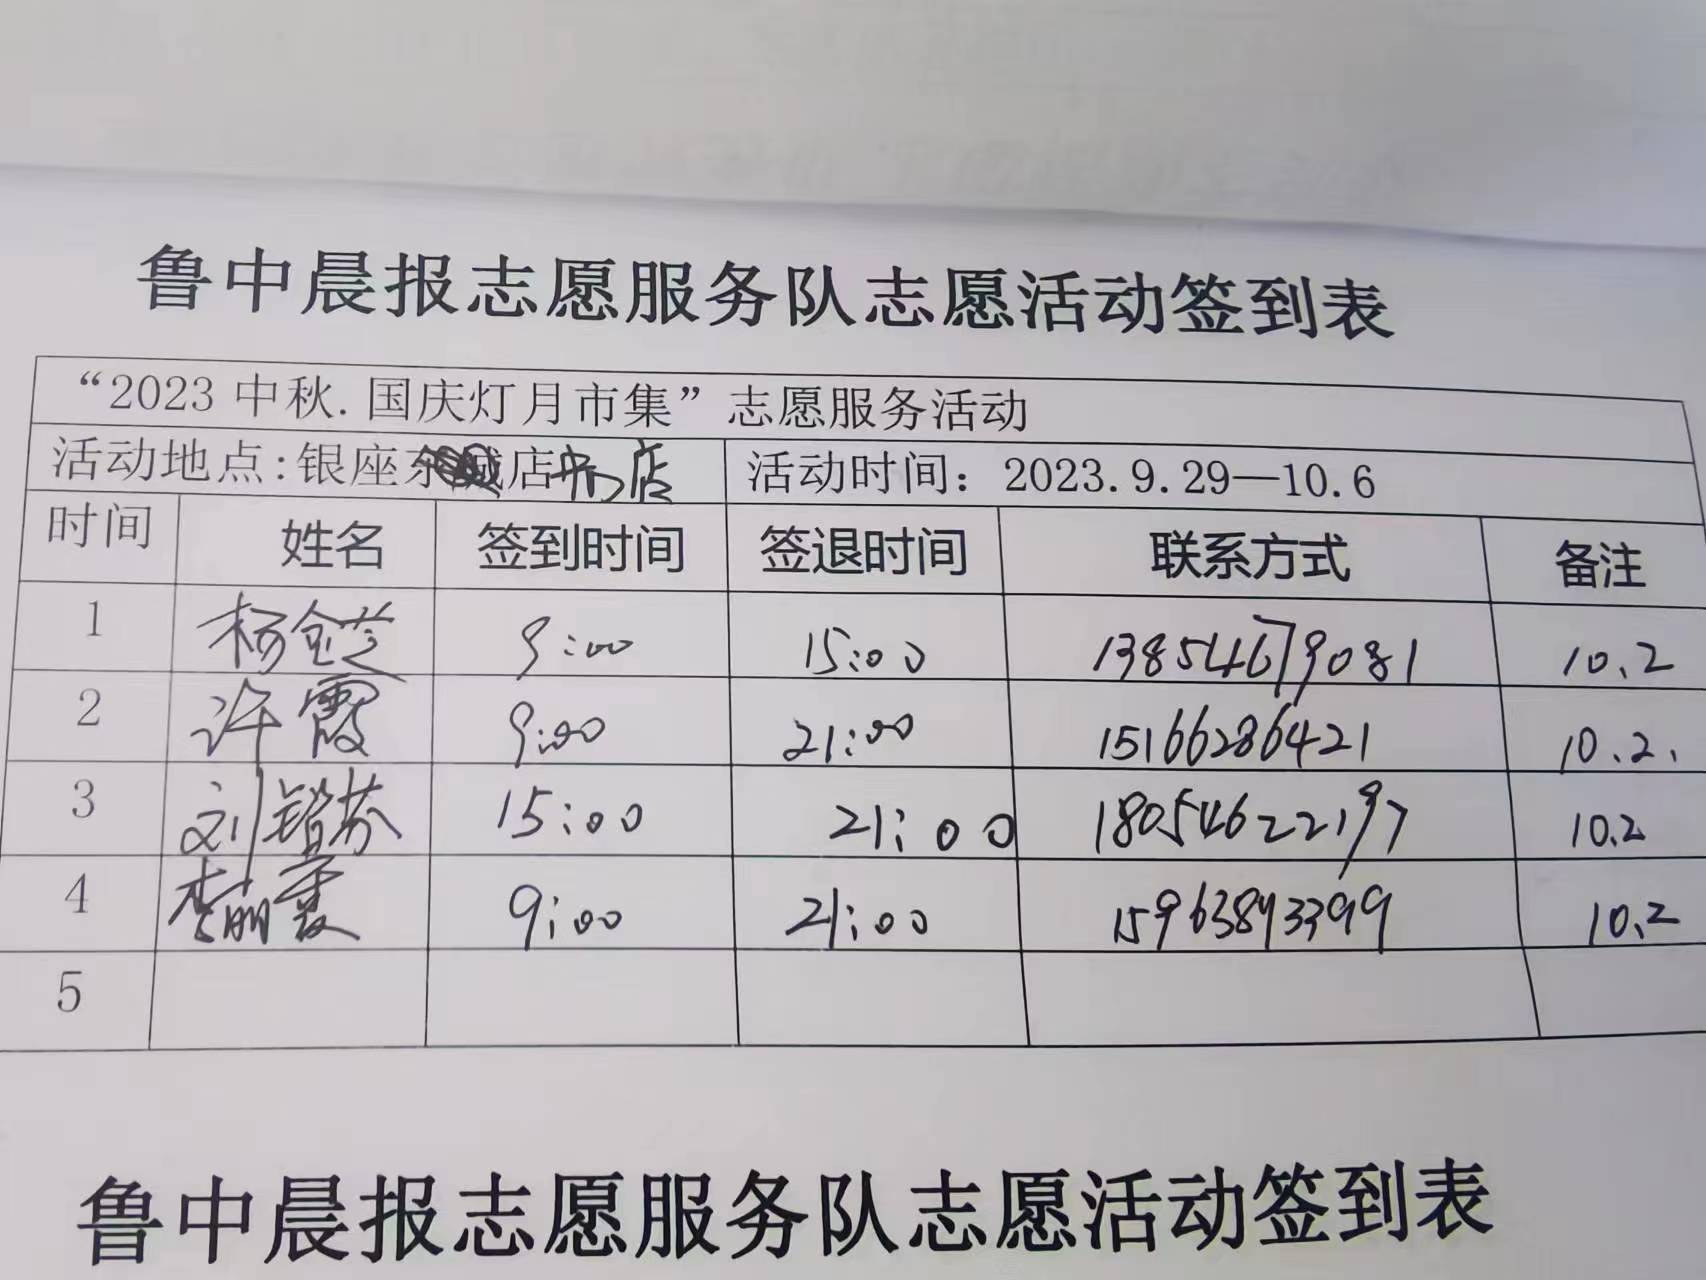 鲁中晨报志愿服务队志愿活动签到表
“2023中秋.国庆灯月市集”志愿服务活动
活动地点:银座东城店 店 活动时间：2023.9.29—10.6
时间 姓名 签到时间 签退时间 联系方式 备注
1 杨金芝 9:00 15:00 13854679081 10.2
2 许霞 9:00 21:00 15166286421 10.2.
3 刘锴芬 15:00 21:00 18054622197 10.2
4 李丽霞 9:00 21:00 15963893399 10.2
5
鲁中晨报志愿服务队志愿活动签到表